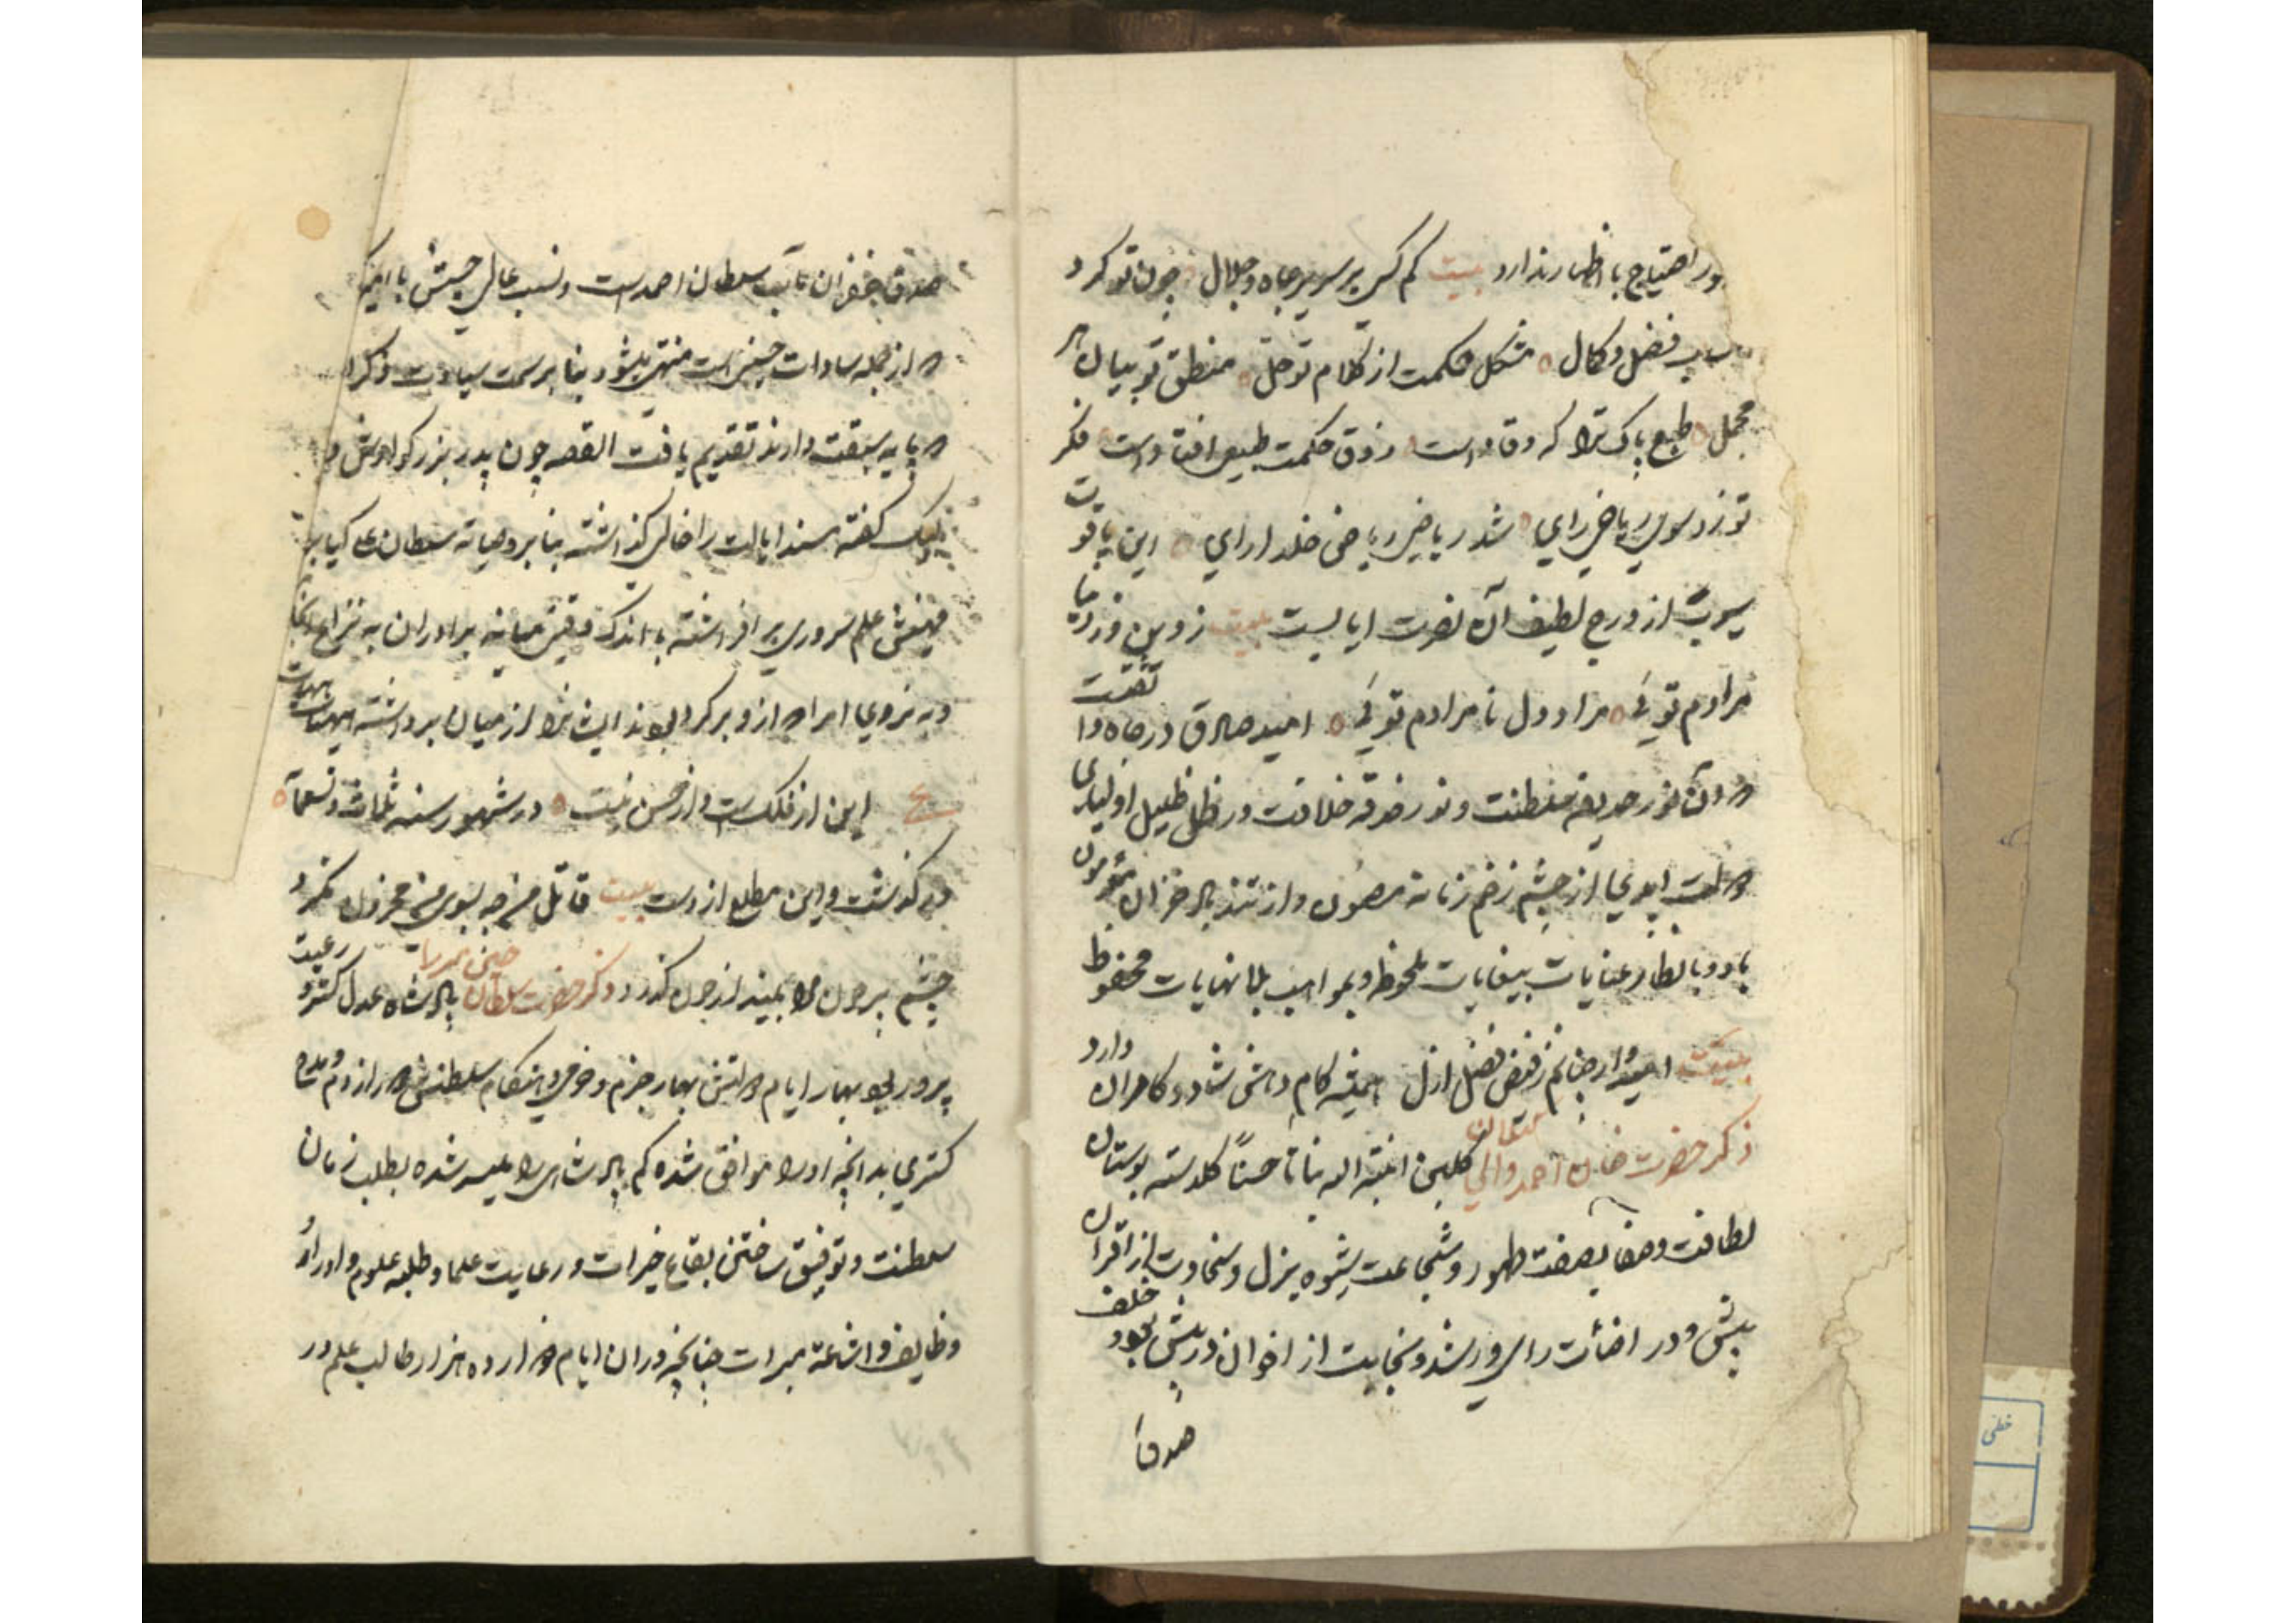 ور احتیاج با ظهار ندارد بیت کم کسی بر سریر جاه و جلال چون تو کرد
فضل و کمال مشکل حکمت از کلام تو حل منطق تو بیان هر
مجمل طبع پاک ترا که وقاد است ذوق حکمت طبیعی افتاد است فکر
تو زد سوی ریاضی رای شد ریاضی ریاضی خلد ارای این یاقوت
از درج لطیف آن حضرت بیت
مرادم توئی مراد دل نا مرادم توئی امید صادق در جاه وا
وآن نور حدیقه سلطنت و نور حدقه خلافت در ظل ظلیل
ابدی از چشم زخم زمانه مصون و از تند باد خزان
باد و بانظار عنایات بیغایات ملحوظ و بمواهب بلا نهایات محفوظ
بیت امیدوار چنانم ز فیض فضل ازل همیشه کام دلش شاد و کامران دارد
ذکر حضرت خان احمد والی گیلان گلبن انبته الله نباتا حسنا گلدسته بوستان
لطافت و صفا بصفت طهور و شجاعت بشیوه بذل و سخاوت از اقران
بیش و در اضائت رای و رشد و نجابت از اخوان در پیش بود خلف
صدق
صدق غفران مآب سلطان احمد است و نسب عالی حسبش با
از جمله سادات حسینی است منتهی میشود بنابر سمت سیادت ذکر
سبقت دارند تقدیم یافت القصه چون پدر بزرگوارش
لبیک گفته مسند ایالت را خالی گذاشته بنا بر وصایه سلطان علی کیا
مهینش علم سروری بر افراشته با اندک وقتی میانه برادران به نزاع
وبه نیروی امرا از و برگردیده بودند ایشانرا از میان برداشته هیهات هیهات
ع این از فلکست و از حسن نیست در شهور سنه ثلاث و تسعمائه
در گذشت و این مطلع از وست بیت قاتل من چه بسوی من محزون نگرد
چشم پر خون مرا بیند از خون گذرد ذکر حضرت سلطان حسین میرزا پادشاه عدل گستر رعیت
پرور بود بهار ایام بهار خرم و خوشی و هنگام سلطنتش
گستری بدانچه او را موافق شده کم پادشاهی را میسر شده بطلب زمان
سلطنت و توفیق ساختن بقاع خیرات و رعایت علما و طلبه علوم و ادرار و
وظایف و اشاعه مبرات چنانچه در ان ایام ده هزار طالب علم در
خطی